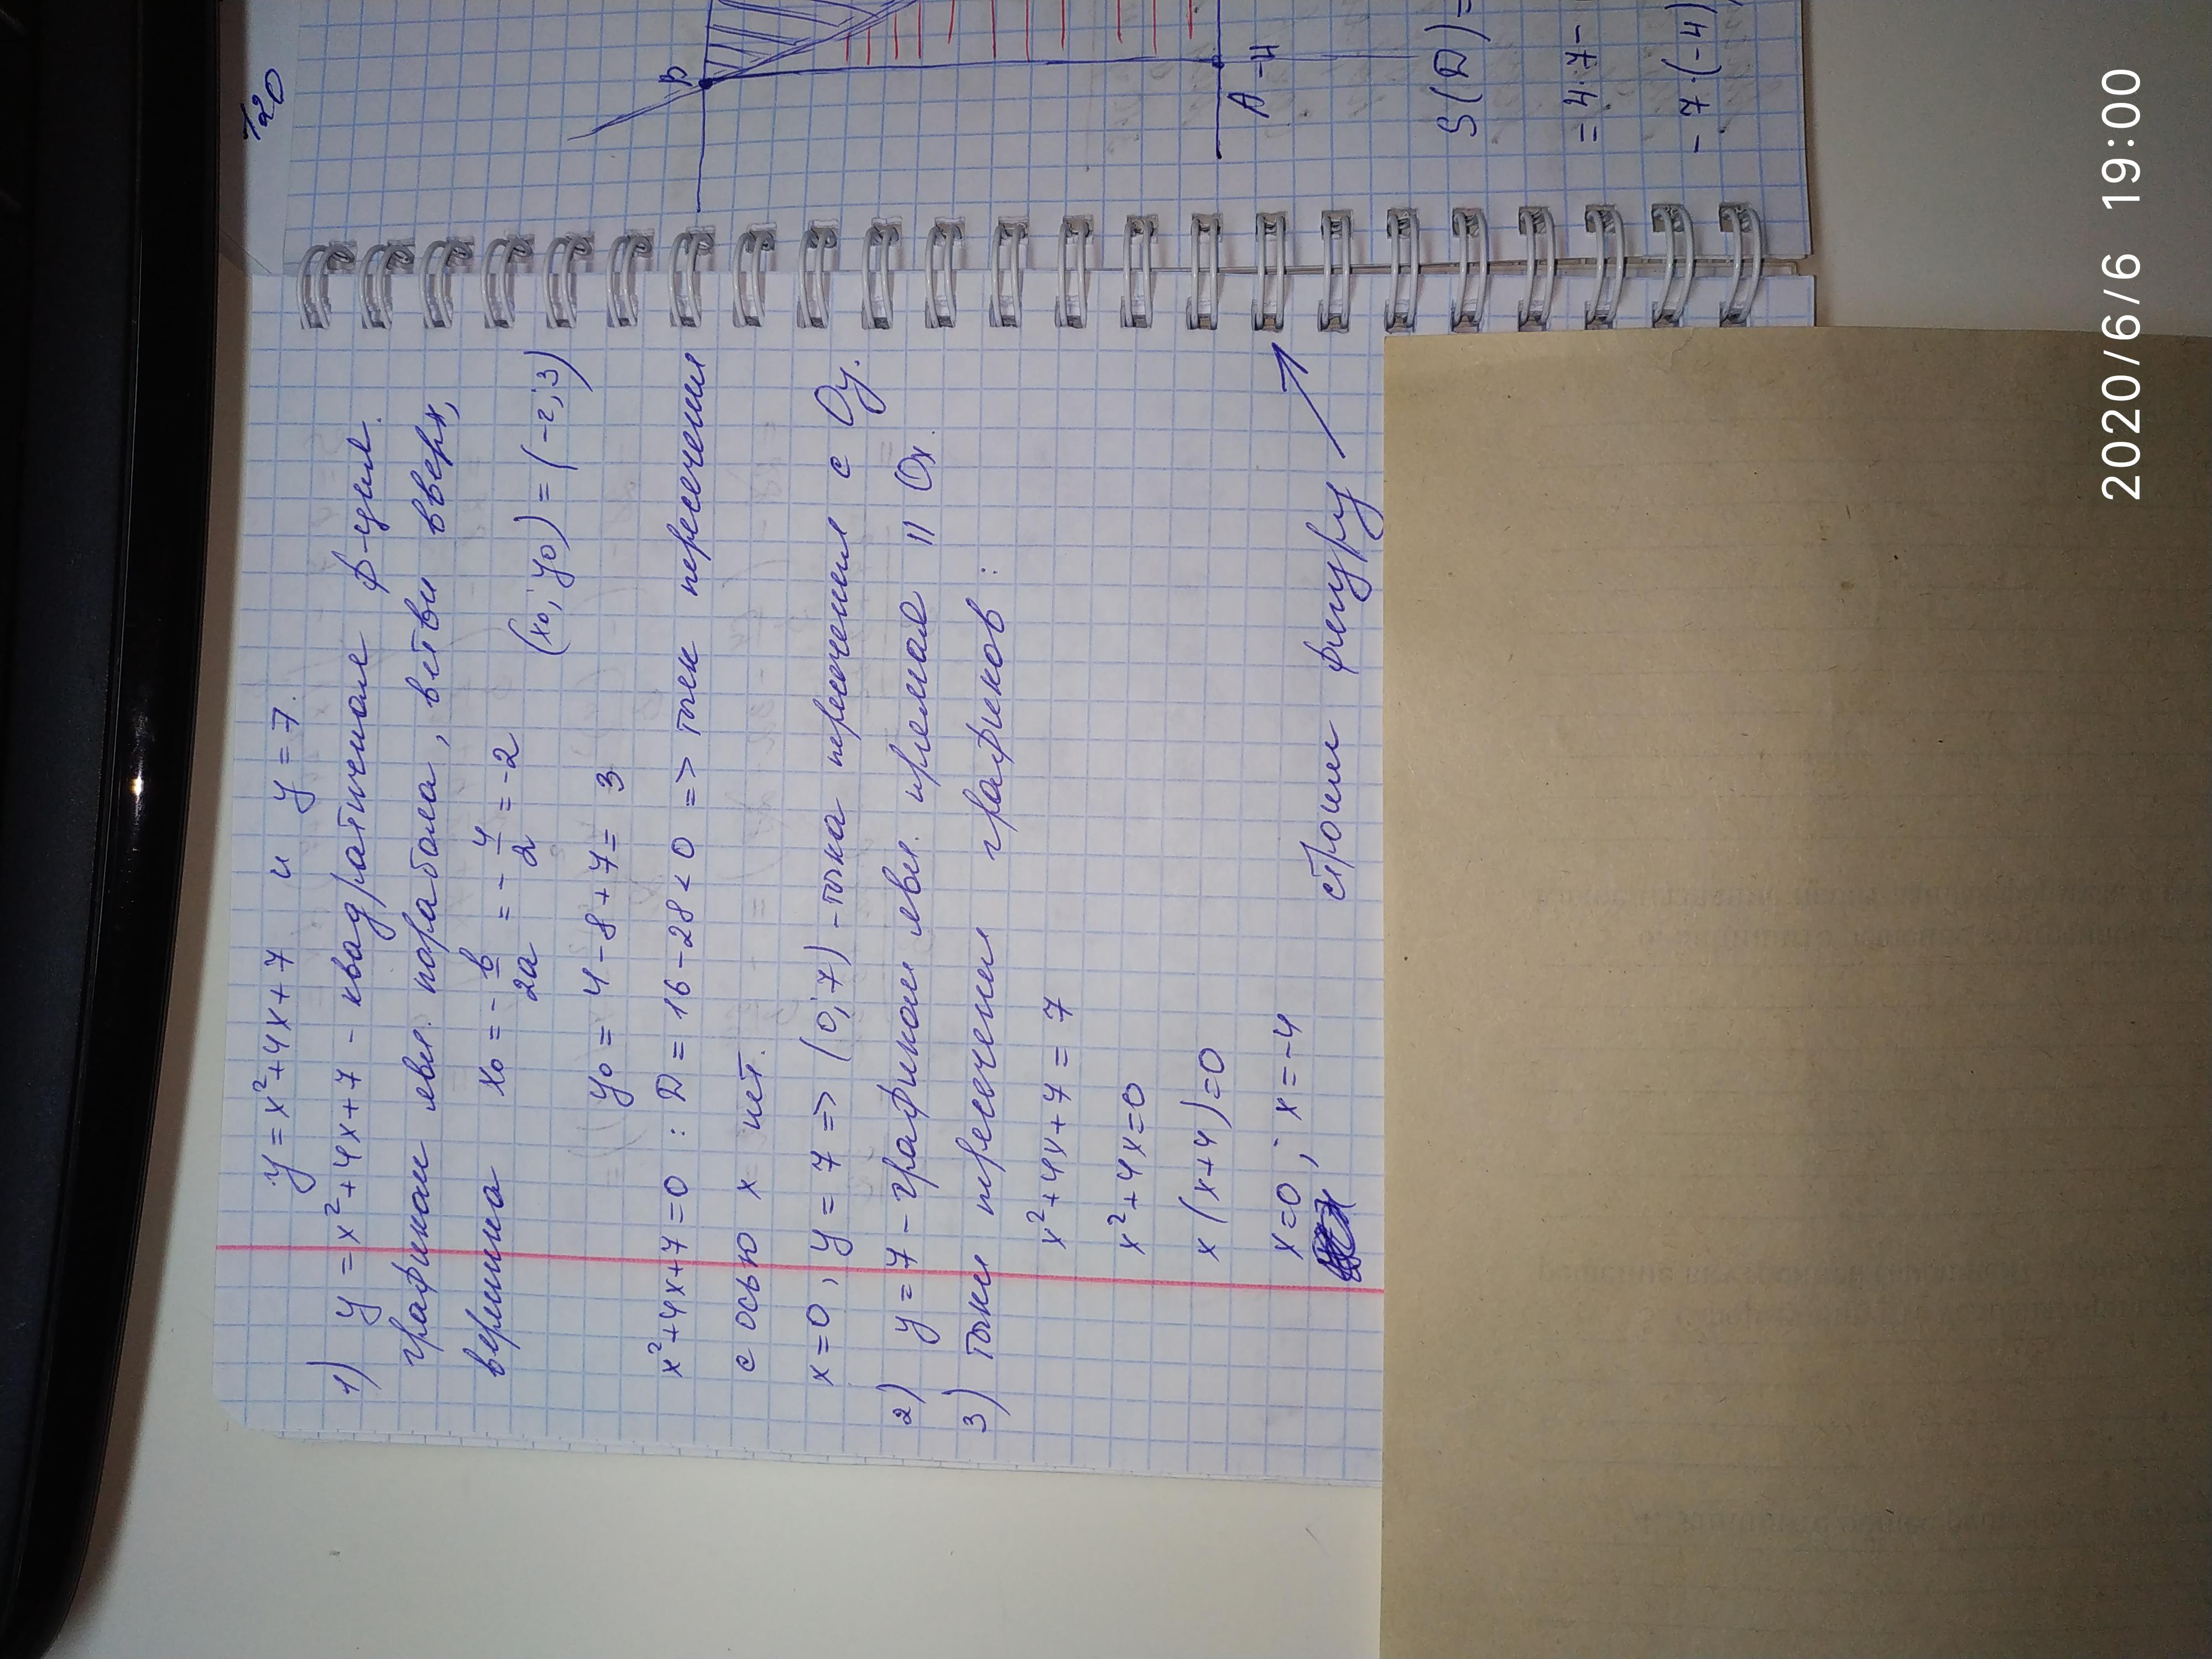 y = x² + 4x + 7 и y = 7.
1) y = x² + 4x + 7 - квадратичная ф-ция.
графиком явл. парабола, ветви вверх,
вершина x₀ = - b/2a = - 4/2 = -2
(x₀; y₀) = (-2; 3)
y₀ = 4 - 8 + 7 = 3
x² + 4x + 7 = 0 : D = 16 - 28 < 0 => точек пересечения
с осью x нет.
x = 0, y = 7 => (0; 7) - точка пересечения с Oy.
2) y = 7 - графиком явл. прямая || Ox.
3) точки пересечения графиков :
x² + 4x + 7 = 7
x² + 4x = 0
x (x + 4) = 0
x = 0 ; x = -4
строим фигуру
B
A -4
S(D) =
= 4·7 -
- 7·(-4)
2020/6/6 19:00